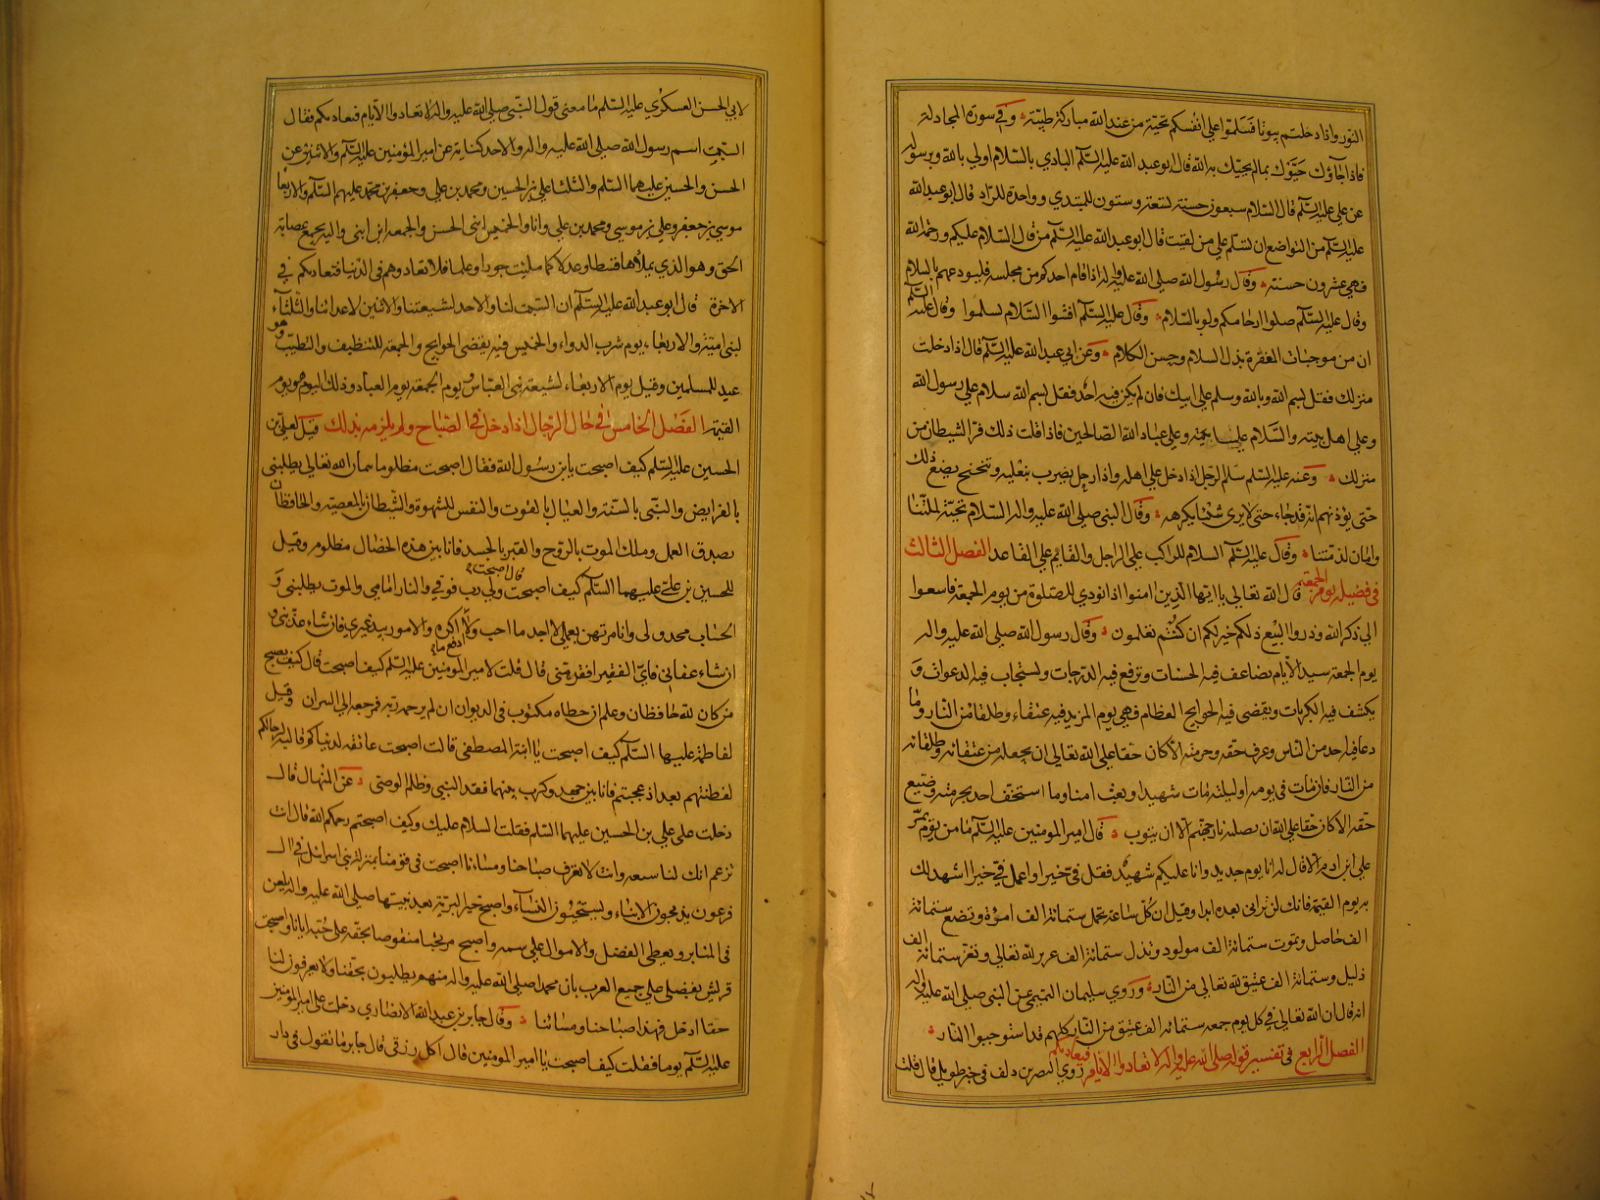 النور واذا دخلتم بيوتا فسلموا على انفسكم تحية من عند الله مباركة طيبة وفي سورة المجادلة
فاذا جاؤك حيّوك بما لم يحيك به الله قال ابو عبد الله عليه السّلم البادي بالسّلام اولى بالله وبرسوله
عن علي عليه السّلم قال السّلام سبعون حسنة لتسعة وستون للمبتدي وواحدة للرّاد قال ابو عبد الله
عليه السّلم من التواضع ان تسلّم على من لقيت قال ابو عبد الله عليه السّلم من قال السّلام عليكم ورحمة الله
فهي عشرون حسنة وقال رسول الله صلى الله عليه واله اذا قام احدكم من مجلسه فليودعهم بالسلام
وقال عليه السّلم صلوا ارحامكم ولو بالسّلام وقال عليه السّلم افشوا السّلام تسلموا وقال عليه السّلم
ان من موجبات المغفرة بذل السلام وحسن الكلام وعن ابي عبد الله عليه السّلم قال اذا دخلت
منزلك فقل بسم الله وبالله وسلم على اهلك فان لم يكن فيه احد فقل بسم الله سلام على رسول الله
وعلى اهل بيته والسّلام علينا وعلى عباد الله الصّالحين فاذا قلت ذلك فر الشيطان من
منزلك وعنه عليه السّلم سلم الرجل اذا دخل على اهله واذا دخل يضرب بنعليه ويتنحنح يصنع ذلك
حتى يؤذنهم انه قد جاء حتى لا يرى شيئا يكرهه وقال النبي صلى الله عليه واله السّلام تحيّة لملّتنا
وامان لذمتنا وقال عليه السّلم السلام للراكب على الراجل والقايم على القاعد الفصل الثالث
في فضيلة يوم الجمعة قال الله تعالى يا ايها الذين امنوا اذا نودي للصلوة من يوم الجمعة فاسعوا
الى ذكر الله وذروا البيع ذلكم خير لكم ان كنتم تعلمون وقال رسول الله صلى الله عليه واله
يوم الجمعة سيد الايام يضاعف فيه الحسنات وترفع فيه الدرجات ويستجاب فيه الدعوات و
يكشف فيه الكربات ويقضى فيه الحوايج العظام فهي يوم المزيد فيه عتقاء وطلقاء من النّار وما
دعا فيه احد من النّاس وعرف حقه وحرمته الا كان حقا على الله تعالى ان يجعله من عتقائه وطلقائه
من النّار فان مات في يومه او ليلته مات شهيدا وبعث امنا وما استخف احد بحرمته وضيع
حقه الا كان حقا على الله ان يصليه نار جهنم الا ان يتوب قال امير المومنين عليه السّلم ما من يوم يمرّ
على ابن ادم الا قال له انا يوم جديد وانا عليكم شهيد فقل فيّ خيرا واعمل فيّ خيرا اشهد لك
به يوم القيمة فانك لن تراني بعده ابدا وقيل ان كلّ ساعة تحمل ستمائة الف امراة وتضع ستمائة
الف حاصل ويموت ستمائة الف مولود وتذل ستمائة الف عزيز لله تعالى وتعز ستمائة الف
ذليل وستمائة الف عتيق لله تعالى من النّار وروي سليمان التميمي عن النبي صلى الله عليه واله
انه قال ان الله تعالى في كل يوم جمعة ستمائة الف عتيق من النّار كلهم قد استوجبوا النّار
الفصل الرّابع في تفسير قوله صلى الله عليه واله لا تعادوا الايّام فيعاديكم روي الصقر بن دلف في خبر طويل قال قلت
لابي الحسن العسكري عليه السّلم ما معنى قول النّبي صلى الله عليه واله لا تعادوا الايام فيعاديكم فقال
السّبت اسم رسول الله صلى الله عليه واله والاحد كناية عن امير المؤمنين عليه السّلم والاثنين عن
الحسن والحسين عليهما السّلم والثلثا علي بن الحسين ومحمد بن علي وجعفر بن محمد عليهم السّلم والاربعا
موسى بن جعفر وعلي بن موسى ومحمد بن علي وانا والخميس ابنى الحسن والجمعة ابن ابنى واليه يجمع عصابة
الحق وهو الذي يملأها قسطا وعدلا كما ملئت جورا وظلما فلا تعادوهم في الدّنيا فتعاديكم في
الاخرة قال ابو عبد الله عليه السّلم ان السّبت لنا والاحد لشيعتنا والاثنين لاعدائنا والثّلثاء
لبنى امية والاربعاء يوم شرب الدواء والخميس فيه يقضى الحوايج والجمعة للتنظيف والتطيّب وهو
عيد للمسلمين وقيل يوم الاربعاء لشيعة بنى العبّاس ويوم الجمعة يوم العباد وذلك اليوم هو يوم
القيمة الفصل الخامس في حال الرّجال اذا دخل في الصّباح ولم يلزمه بذلك قيل لعلي بن
الحسين عليه السّلم كيف اصبحت يا بن رسول الله فقال اصبحت مظلوما بثمان الله تعالى يطلبنى
بالفرايض والنّبي بالسّنة والعيال بالقوت والنفس للشهوة والشّيطان بالمعصية والحافظان
بصدق العمل وملك الموت بالرّوح والقبر بالجسد فانا بين هذه الخصال مظلوم وقيل
للحسين بن علي عليهما السّلم كيف اصبحت قال اصبحت ولي رب فوقي والنار امامي والموت يطلبني و
الحساب محدق بى وانا مرتهن بعملى لا اجد ما احب ولا ادفع ما اكره والامور بيد غيري فان شاء عذبني و
ان شاء عفا بى فاي الفقير افقر منى قال قلت لامير المومنين عليه السّلم كيف اصبحت قال كيف يصبح
من كان لله حافظان وعلم ان خطاه مكتوب في الديوان ان لم يرحمه ربه فمرجعه الى النيران وقيل
لفاطمة عليها السّلم كيف اصبحت يا ابنة المصطفى قالت اصبحت عائفة لدنياكم قالية لرجالكم
لفظتهم بعد اذ عجمتهم فانا بين جهد وكرب بينهما فقد النبي وظلم الوصى عن المنهال قال
دخلت على علي بن الحسين عليهما السّلم فقلت السلام عليك وكيف اصبحتم رحمكم الله قال انت
تزعم انك لنا شيعة وانت لا تعرف صباحنا ومسانا اصبحت فى قومنا بمنزلة بنى اسرائيل في ال
فرعون يذبحون الابناء ويستحيون النساء واصبح خير البرية بعد نبيها صلى الله عليه واله يلعن
فى المنابر ويعطى الفضل والاموال على واصبح من يحبنا منقوصا بحقه على حبه ايانا واصبحت
قريش تفضل على جميع العرب بان محمدا صلى الله عليه واله منهم يطلبون بحقنا ولا يعرفون لنا
حقا ادخل فهذا صباحنا ومسائنا وقال جابر بن عبد الله الانصاري دخلت على امير المومنين
عليه السّلم يوما فقلت كيف اصبحت يا امير المومنين قال اكل رزقى قال جابر ما تقول في دار